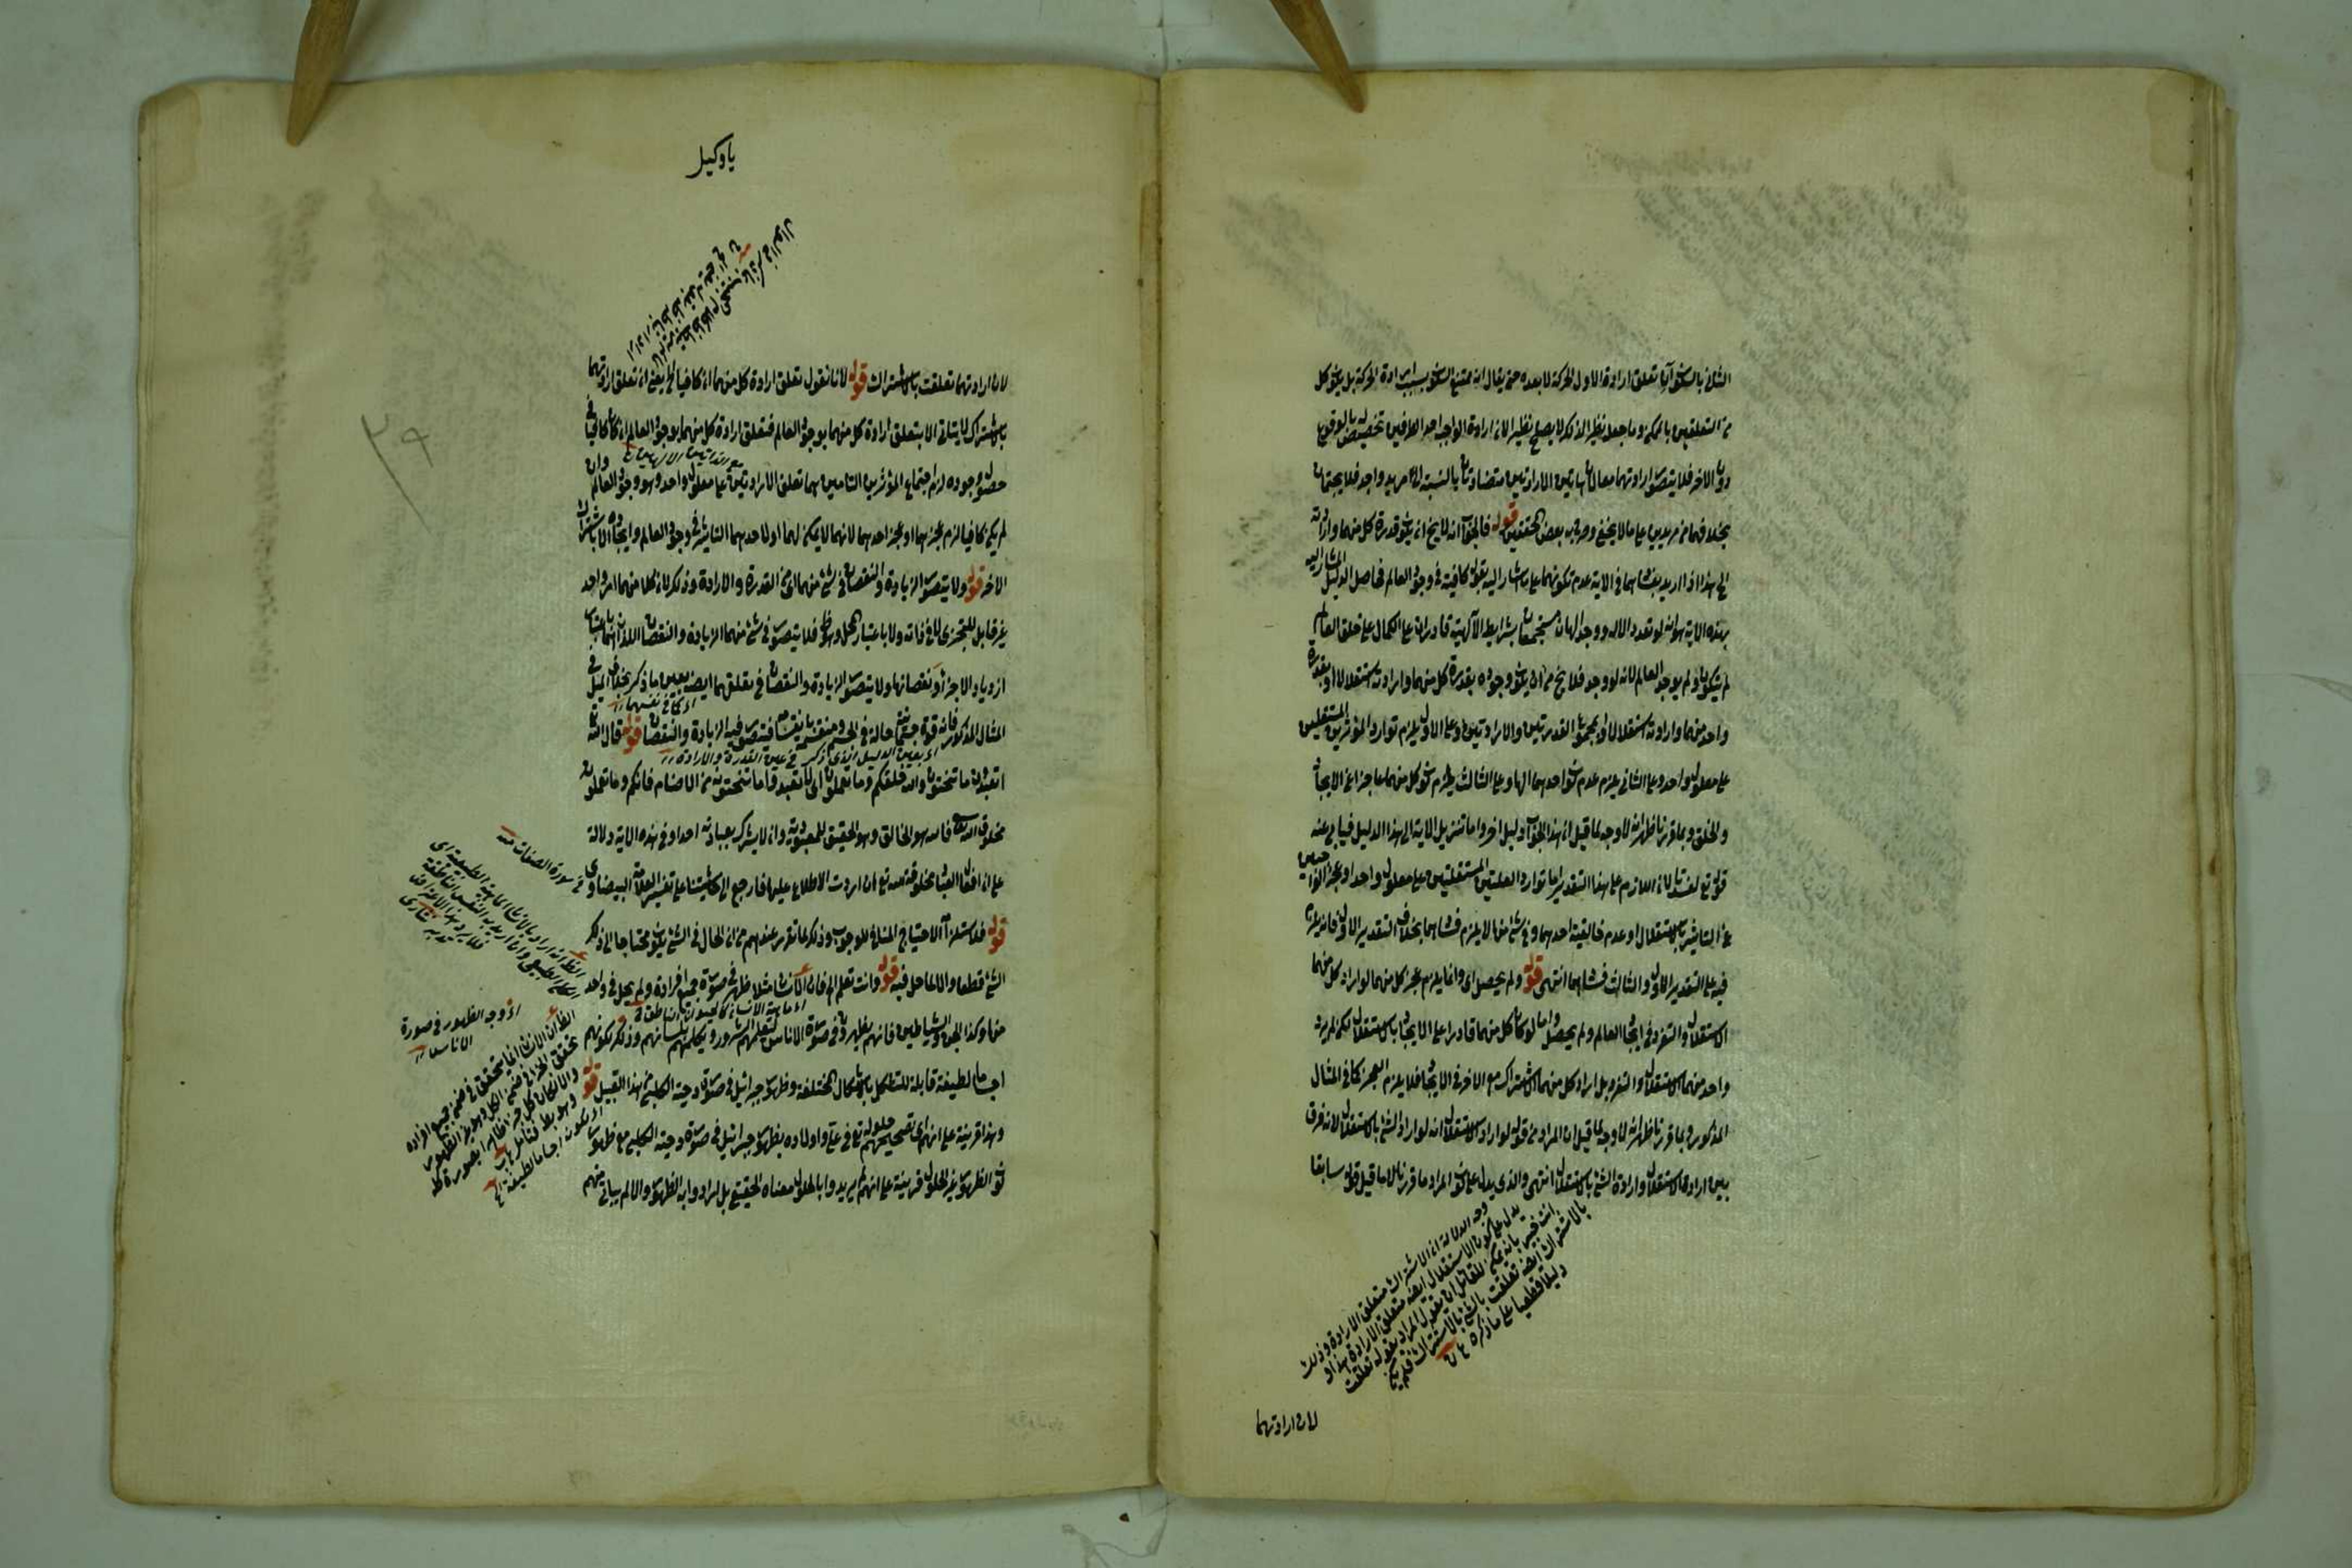 الثاني بالسكون آن تعلق ارادة الاول بالحركة لا بعده حتى يقال انه يمتنع السكون بسبب ارادة الحركة بل يكون كل
من التعلقين بالممكن وما جعله نظير الذلك لا يصلح نظيرا لان ارادة الواجب احد الطرفين تخصيص له بالوقوع
دون الاخر فلا يتصور ارادتهما معا لان هاتين الارادتين متضادتان بالنسبة الى مريد واحد فلا يجتمعان
بخلافهما من مريدين على ما لا يخفى وصرح به بعض المحققين قوله فالحق آه انه لا يخ ان يكون قدرة كل منهما وارادته
الى هذا اذا اريد بفسادهما في الاية عدم تكونهما على ما اشار اليه بقوله كافية في وجود العالم فحاصل الدليل المشار اليه
بهذه الاية هو انه لو تعدد الاله ووجد الهان مستجمعان بشرايط الآلهية قادران على الكمال على خلق العالم
لم يتكون ولم يوجد العالم لانه لو وجد فلا يخ من ان يكون وجوده بقدرة كل منهما وارادته استقلالا او بقدرة
واحد منهما وارادته استقلالا او بمجموع القدرتين والارادتين وعلى الاول يلزم توارد المؤثرين المستقلين
على معلول واحد وعلى الثاني يلزم عدم كون احدهما الها وعلى الثالث يلزم كون كل منهما عاجزا عن الايجاد
والخلق وبما قررنا ظهر انه لا وجه لما قيل ان هذا الحق آه دليل اخر واما تنزيل الاية الى هذا الدليل فيابى عنه
قوله تع لفسدتا لان اللازم على هذا التقدير اما توارد العلتين المستقلتين على معلول واحد او عجز الواجبين
عن التاثير بالاستقلال او عدم خالقية احدهما وفي شئ منها لا يلزم فسادهما بخلاف التقدير الاول فانه يلزم
فيه على التقدير الاول والثالث فسادهما انتهى قوله ولم يحصل اى وانما يلزم عجز كل منهما لو اراد كل منهما
الاستقلال والتفرد في ايجاد العالم ولم يحصل واما لو كان كل منهما قادرا على الايجاد بالاستقلال لكن لم يرد
واحد منهما الاستقلال والتفرد بل اراد كل منهما الاشتراك مع الاخر في الايجاد فلا يلزم العجز كما في المثال
المذكور وبما قررنا ظهر انه لا وجه لما قيل ان المراد من قوله لو اراد الاستقلال انه لو اراد الشئ بالاستقلال لانه فرق
بين ارادة الاستقلال وارادة الشئ بالاستقلال انتهى والذي يدل على كون المراد ما قررنا لا ما قيل قوله سابقا
وجه الدلالة ان الاشتراك متعلق الارادة وذلك
يدل على كون الاستقلال ايضه متعلق الارادة هذا و
انت خبير بانه يمكن للقائل ان يقول المراد بقوله تعلقت
بالاشتراك ايضه تعلقت بالشئ بالاشتراك فلم يكن
دليلا قطعيا على ما ذكره
لان ارادتهما
يا وكيل
لان ارادتهما تعلقت بالاشتراك قوله لانا نقول تعلق ارادة كل منهما ان كافيا الخ يعنى ان تعلق ارادتهما
بالاشتراك لا يتاتى الا بتعلق ارادة كل منهما بوجود العالم فتعلق ارادة كل منهما بوجود العالم ان كان كافيا في
حصول وجوده لزم اجتماع المؤثرين التامين هما تعلق الارادتين على معلول واحد وهو وجود العالم وان
لم يكن كافيا لزم عجزهما او عجز احدهما لانهما لا يمكن لهما او لاحدهما التاثير في وجود العالم وايجاده الا باشتراك
الاخر قوله ولا يتصور الزيادة والنقصان في شئ منهما اى من القدرة والارادة وذلك لان كلا منهما امر واحد
غير قابل للتجزى لا في ذاته ولا باعتبار المحل وهو ظ فلا يتصور في شئ منهما الزيادة والنقصان اللذان هما باعتبار
ازدياد الاجزاء ونقصانها ولا يتصور الزيادة والنقصان في تعلقهما ايضه بعين ما ذكر بخلاف الميل في
المثال المذكور فانه قوة جسمانية حالة في الجسم ومنقسم بانقسامه فيتصور فيه الزيادة والنقصان قوله قال الله تع
اى بعين الدليل الذى ذكر في عين القدرة والارادة
اتعبدون ما تنحتون والله خلقكم وما تعملون اى لا تعبدوا ما تنحتونه من الاصنام فانكم وما تعملون
مخلوق الله تع فانه هو الخالق وهو الحقيق للمعبودية وان لا يشرك بعبادته احدا وفي هذه الاية دلالة
على ان افعال العباد مخلوقة لله تع ان اردت الاطلاع عليها فارجع الى حاشيتنا على تفسير العلامة البيضاوى
قوله فلاستلزامه الاحتياج المنافي للوجوب وذلك لما تقرر عندهم من ان الحال في الشئ يكون محتاجا الى ذلك
الشئ قطعا والا لما حل فيه قوله وانت تعلم الخ فان الانسان مثلا ظهر في صورة جميع افراده ولم يحل في واحد
منها وكذا الجن والشياطين فانهم يظهرون في صورة الاناس لتعلمهم الشرور ويكلمهم بلسانهم وذلك لكونهم
اجساما لطيفة قابلة للتشكل بالاشكال المختلفة وظهور جبرائيل في صورة دحية الكلبي من هذا القبيل قوله
وهذا قرينة على انهم اى تصحيحهم حلوله تع في على واولاده بظهور جبرائيل في صورة دحية الكلبي مع ظهور
كون الظهور غير الحلول قرينة على انهم لم يريدوا بالحلول معناه الحقيقى بل ارادوا به الظهور والا لم يتات منهم
في سورة الصافات منه
اى وجه الظهور في صورة
الاناس